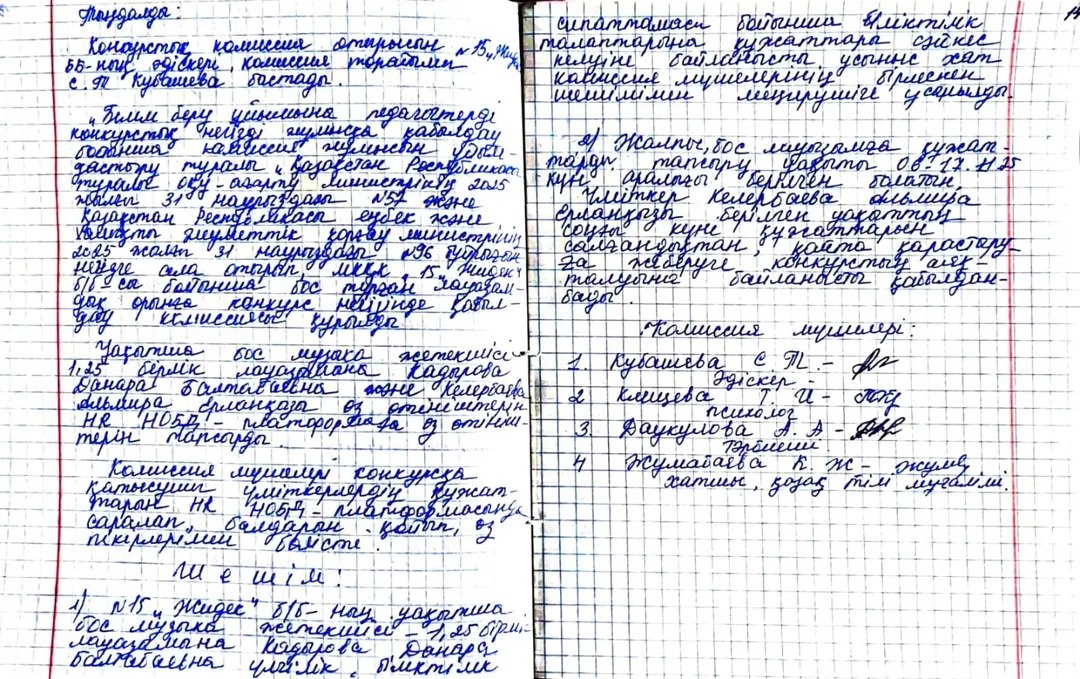 Тыңдалды:
Конкурстық комиссия отырысын №15 „Жидек"
ББ-ның әдіскері, комиссия төрайымы
С.Т Кубашева бастады.
„Білім беру ұйымына педагогтерді
конкурстық негізді жұмысқа қабылдау
бойынша комиссия жұмысын ұйым-
дастыру туралы „Қазақстан Республикасы
туралы оқу-ағарту министрінің 2025
жылғы 31 наурыздағы №57 және
Қазақстан Республикасы еңбек және
халықты әлеуметтік қорғау министрінің
2025 жылғы 31 наурыздағы №96 бұйрығын
негізге ала отырып, МККК „15 „Жидек"
б/б сы бойынша бос тұрған лауазым-
дық орынға конкурс негізінде қабыл-
дау комиссиясы құрылды
Уақытша бос музыка жетекшісі
1,25 бірлік лауазымына Кадырова
Данара Балтабаевна және Келербаева
Эльмира Ерланқызы өз өтініштерін
HR НОБД - платформаға өз өтініш-
терін тапсырды.
Комиссия мүшелері конкурсқа
қатысушы үміткерлердің құжат-
тарын HR НОБД - платформасында
саралап, балдарын қойып, өз
пікірлерімен бөлісті.
Шешім:
1) №15 „Жидек" б/б-ның уақытша
бос музыка жетекшісі - 1,25 бірлік
лауазымына Кадырова Данара
Балтабаевна үлгілік, біліктілік
сипаттамасы бойынша біліктілік
талаптарына құжаттары сәйкес
келуіне байланысты ұсыныс хат
комиссия мүшелерінің бірлескен
шешімімен меңгерушіге ұсынылды.
2) Жалпы, бос лауазымға құжат-
тарды тапсыру уақыты 06-17.11.25
күні аралығы берілген болатын,
Үміткер Келербаева Эльмира
Ерланқызы берілген уақыттың
соңғы күні құжаттарын
салғандықтан, қайта қарастыру-
ға жіберуге конкурстың аяқ-
талуына байланысты қабылдан-
бады.
Комиссия мүшелері:
1. Кубашева С Т. -
Әдіскер -
2 Клещева Т. И -
психолог
3. Даукулова А. А -
Тәрбиеші
4 Жумабаева К. Ж -
хатшы, қазақ тілі мұғалімі.